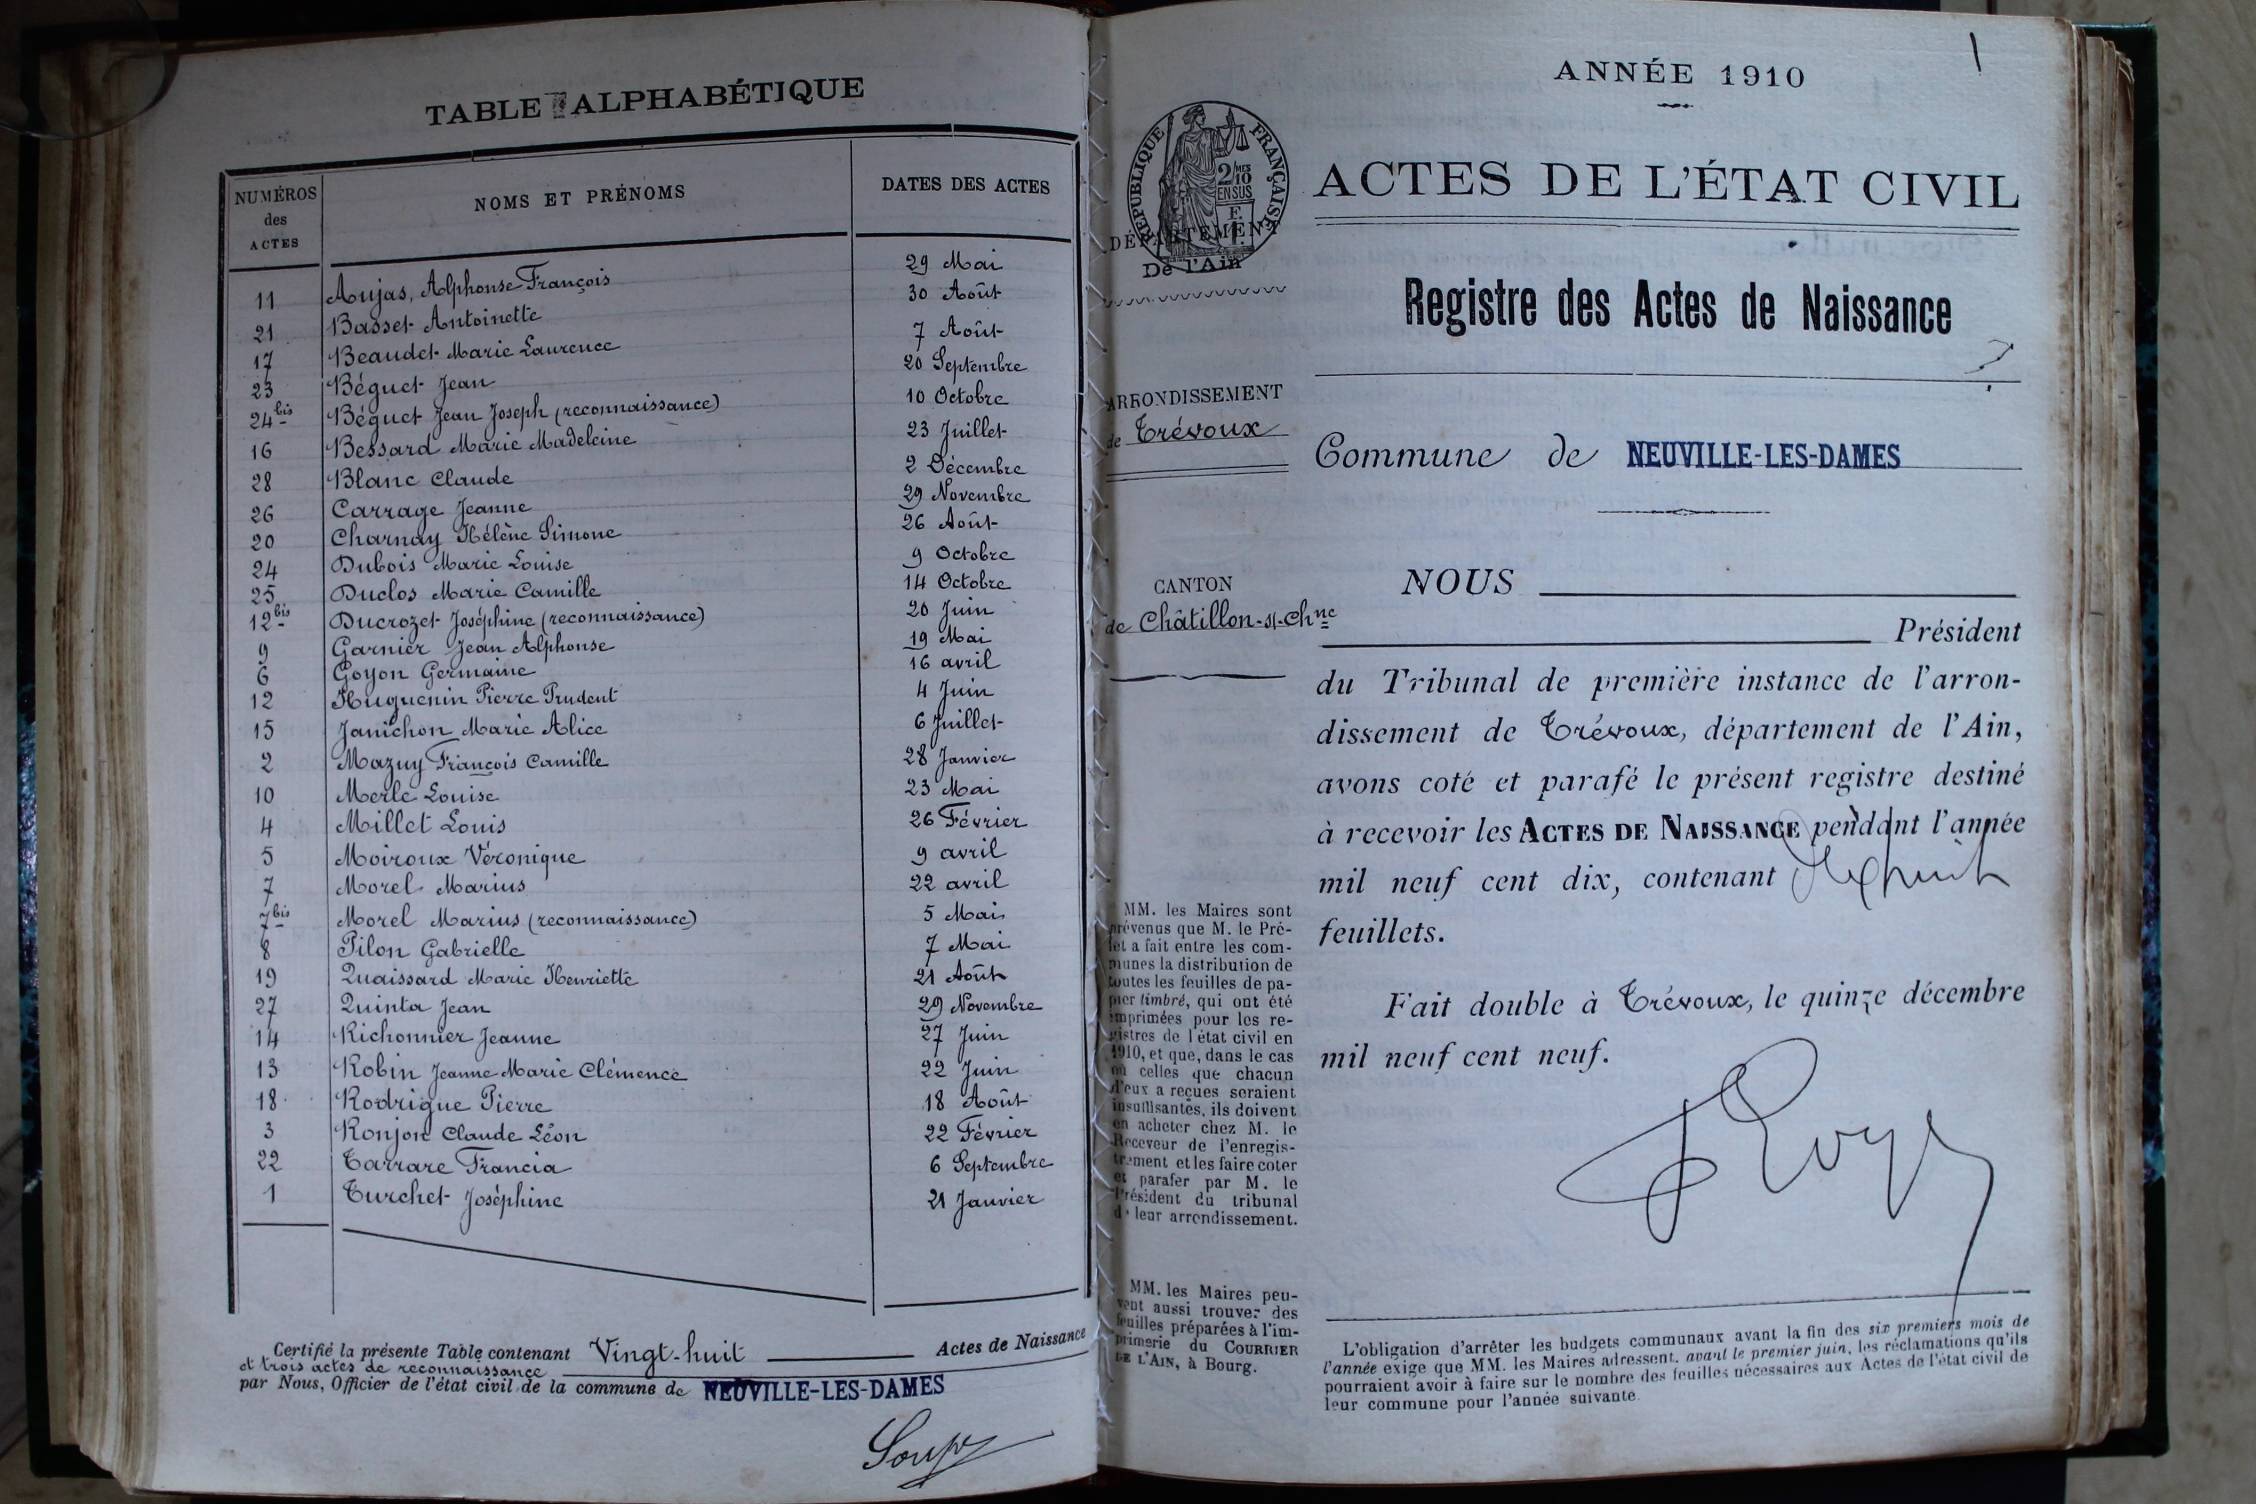 TABLE ALPHABÉTIQUE
NUMÉROS des ACTES NOMS ET PRÉNOMS DATES DES ACTES
11 Aujas, Alphonse François 29 Mai
21 Basset Antoinette 30 Août
17 Beaudet Marie Laurence 7 Août
23 Béguet Jean 20 Septembre
24 bis Béguet Jean Joseph (reconnaissance) 10 Octobre
16 Bessard Marie Madeleine 23 Juillet
28 Blanc Claude 2 Décembre
26 Carrage Jeanne 29 Novembre
20 Charnay Hélène Simone 26 Août
24 Dubois Marie Louise 9 Octobre
25 Duclos Marie Camille 14 Octobre
12 bis Ducrozet Joséphine (reconnaissance) 20 Juin
9 Garnier Jean Alphonse 19 Mai
6 Goyon Germaine 16 avril
12 Huguenin Pierre Prudent 4 Juin
15 Janichon Marie Alice 6 Juillet
2 Mazuy François Camille 28 Janvier
10 Merle Louise 23 Mai
4 Millet Louis 26 Février
5 Moiroux Véronique 9 avril
7 Morel Marius 22 avril
7 bis Morel Marius (reconnaissance) 5 Mai
8 Pilon Gabrielle 7 Mai
19 Quaissard Marie Henriette 21 Août
27 Quinta Jean 29 Novembre
14 Richonnier Jeanne 27 Juin
13 Robin Jeanne Marie Clémence 22 Juin
18 Rodrigue Pierre 18 Août
3 Ronjon Claude Léon 22 Février
22 Tarrare Francia 6 Septembre
1 Turchet Joséphine 21 Janvier
Certifié la présente Table contenant Vingt-huit Actes de Naissance
et trois actes de reconnaissance
par Nous, Officier de l'état civil de la commune de NEUVILLE-LES-DAMES
1
ANNÉE 1910
RÉPUBLIQUE FRANÇAISE
2/10 MES EN SUS
ACTES DE L'ÉTAT CIVIL
DÉPARTEMENT
De l'Ain
Registre des Actes de Naissance
ARRONDISSEMENT
de Trévoux
Commune de NEUVILLE-LES-DAMES
CANTON
de Châtillon-s-Chne
NOUS
Président
du Tribunal de première instance de l'arron-
dissement de Trévoux, département de l'Ain,
avons coté et parafé le présent registre destiné
à recevoir les ACTES DE NAISSANCE pendant l'année
mil neuf cent dix, contenant dix huit
feuillets.
Fait double à Trévoux, le quinze décembre
mil neuf cent neuf.
MM. les Maires sont
prévenus que M. le Pré-
fet a fait entre les com-
munes la distribution de
toutes les feuilles de pa-
pier timbré, qui ont été
imprimées pour les re-
gistres de l'état civil en
1910, et que, dans le cas
où celles que chacun
d'eux a reçues seraient
insuffisantes, ils doivent
en acheter chez M. le
Receveur de l'enregis-
trement et les faire coter
et parafer par M. le
Président du tribunal
de leur arrondissement.
MM. les Maires peu-
vent aussi trouver des
feuilles préparées à l'im-
primerie du COURRIER
DE L'AIN, à Bourg.
L'obligation d'arrêter les budgets communaux avant la fin des six premiers mois de
l'année exige que MM. les Maires adressent, avant le premier juin, les réclamations qu'ils
pourraient avoir à faire sur le nombre des feuilles nécessaires aux Actes de l'état civil de
leur commune pour l'année suivante.